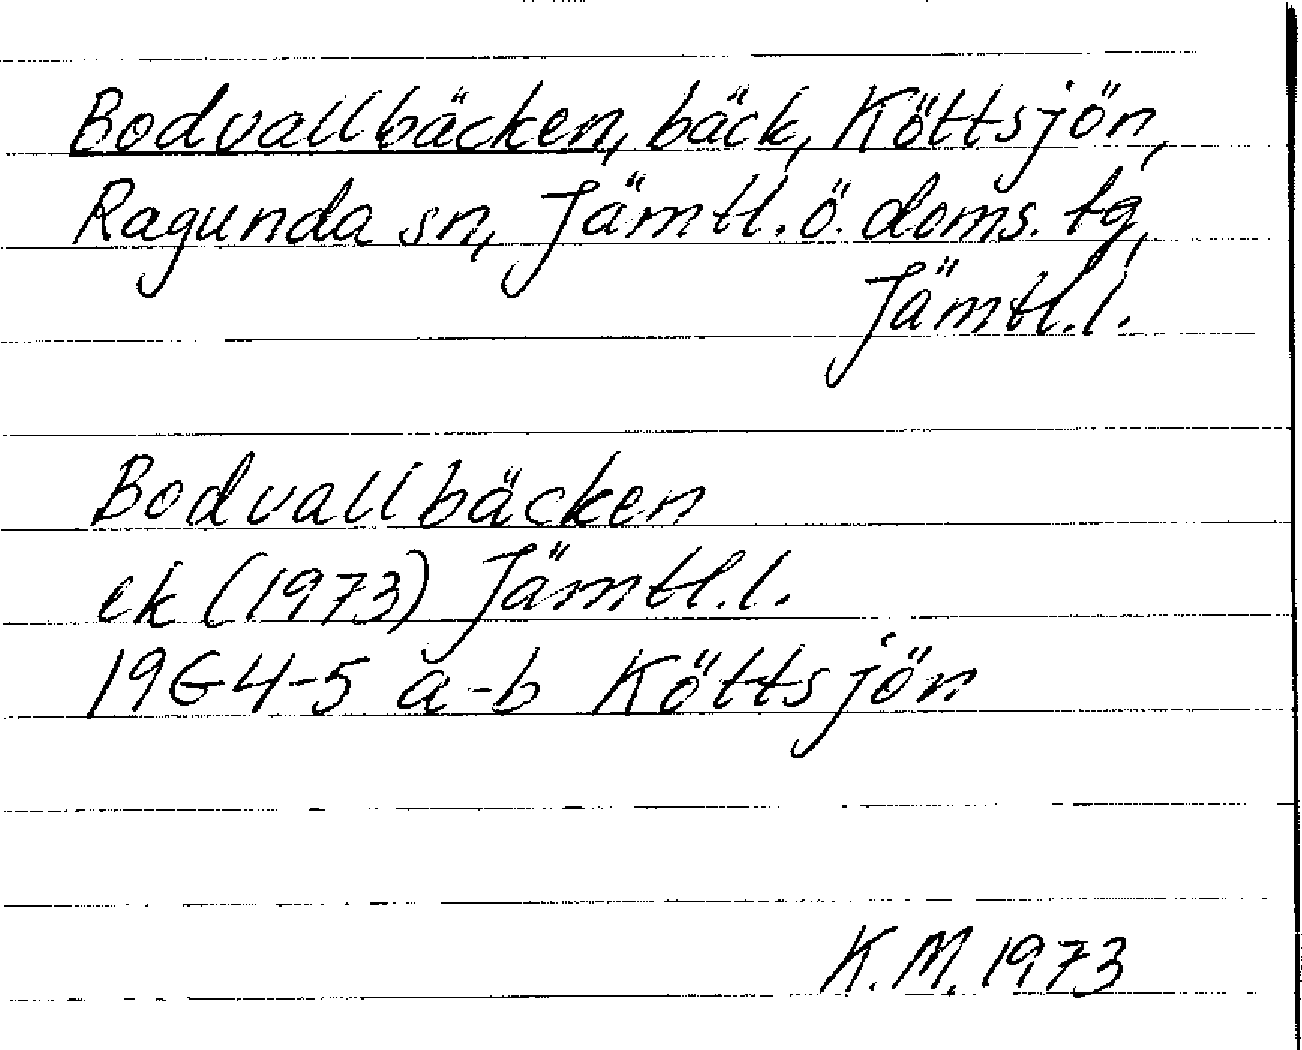 Bodvallbäcken, bäck, Köttsjön,
Ragunda sn, Jämtl. ö. doms. tg,
Jämtl. l.
Bodvallbäcken
ek (1973) Jämtl. l.
19G4-5 a-b Köttsjön
K. M. 1973